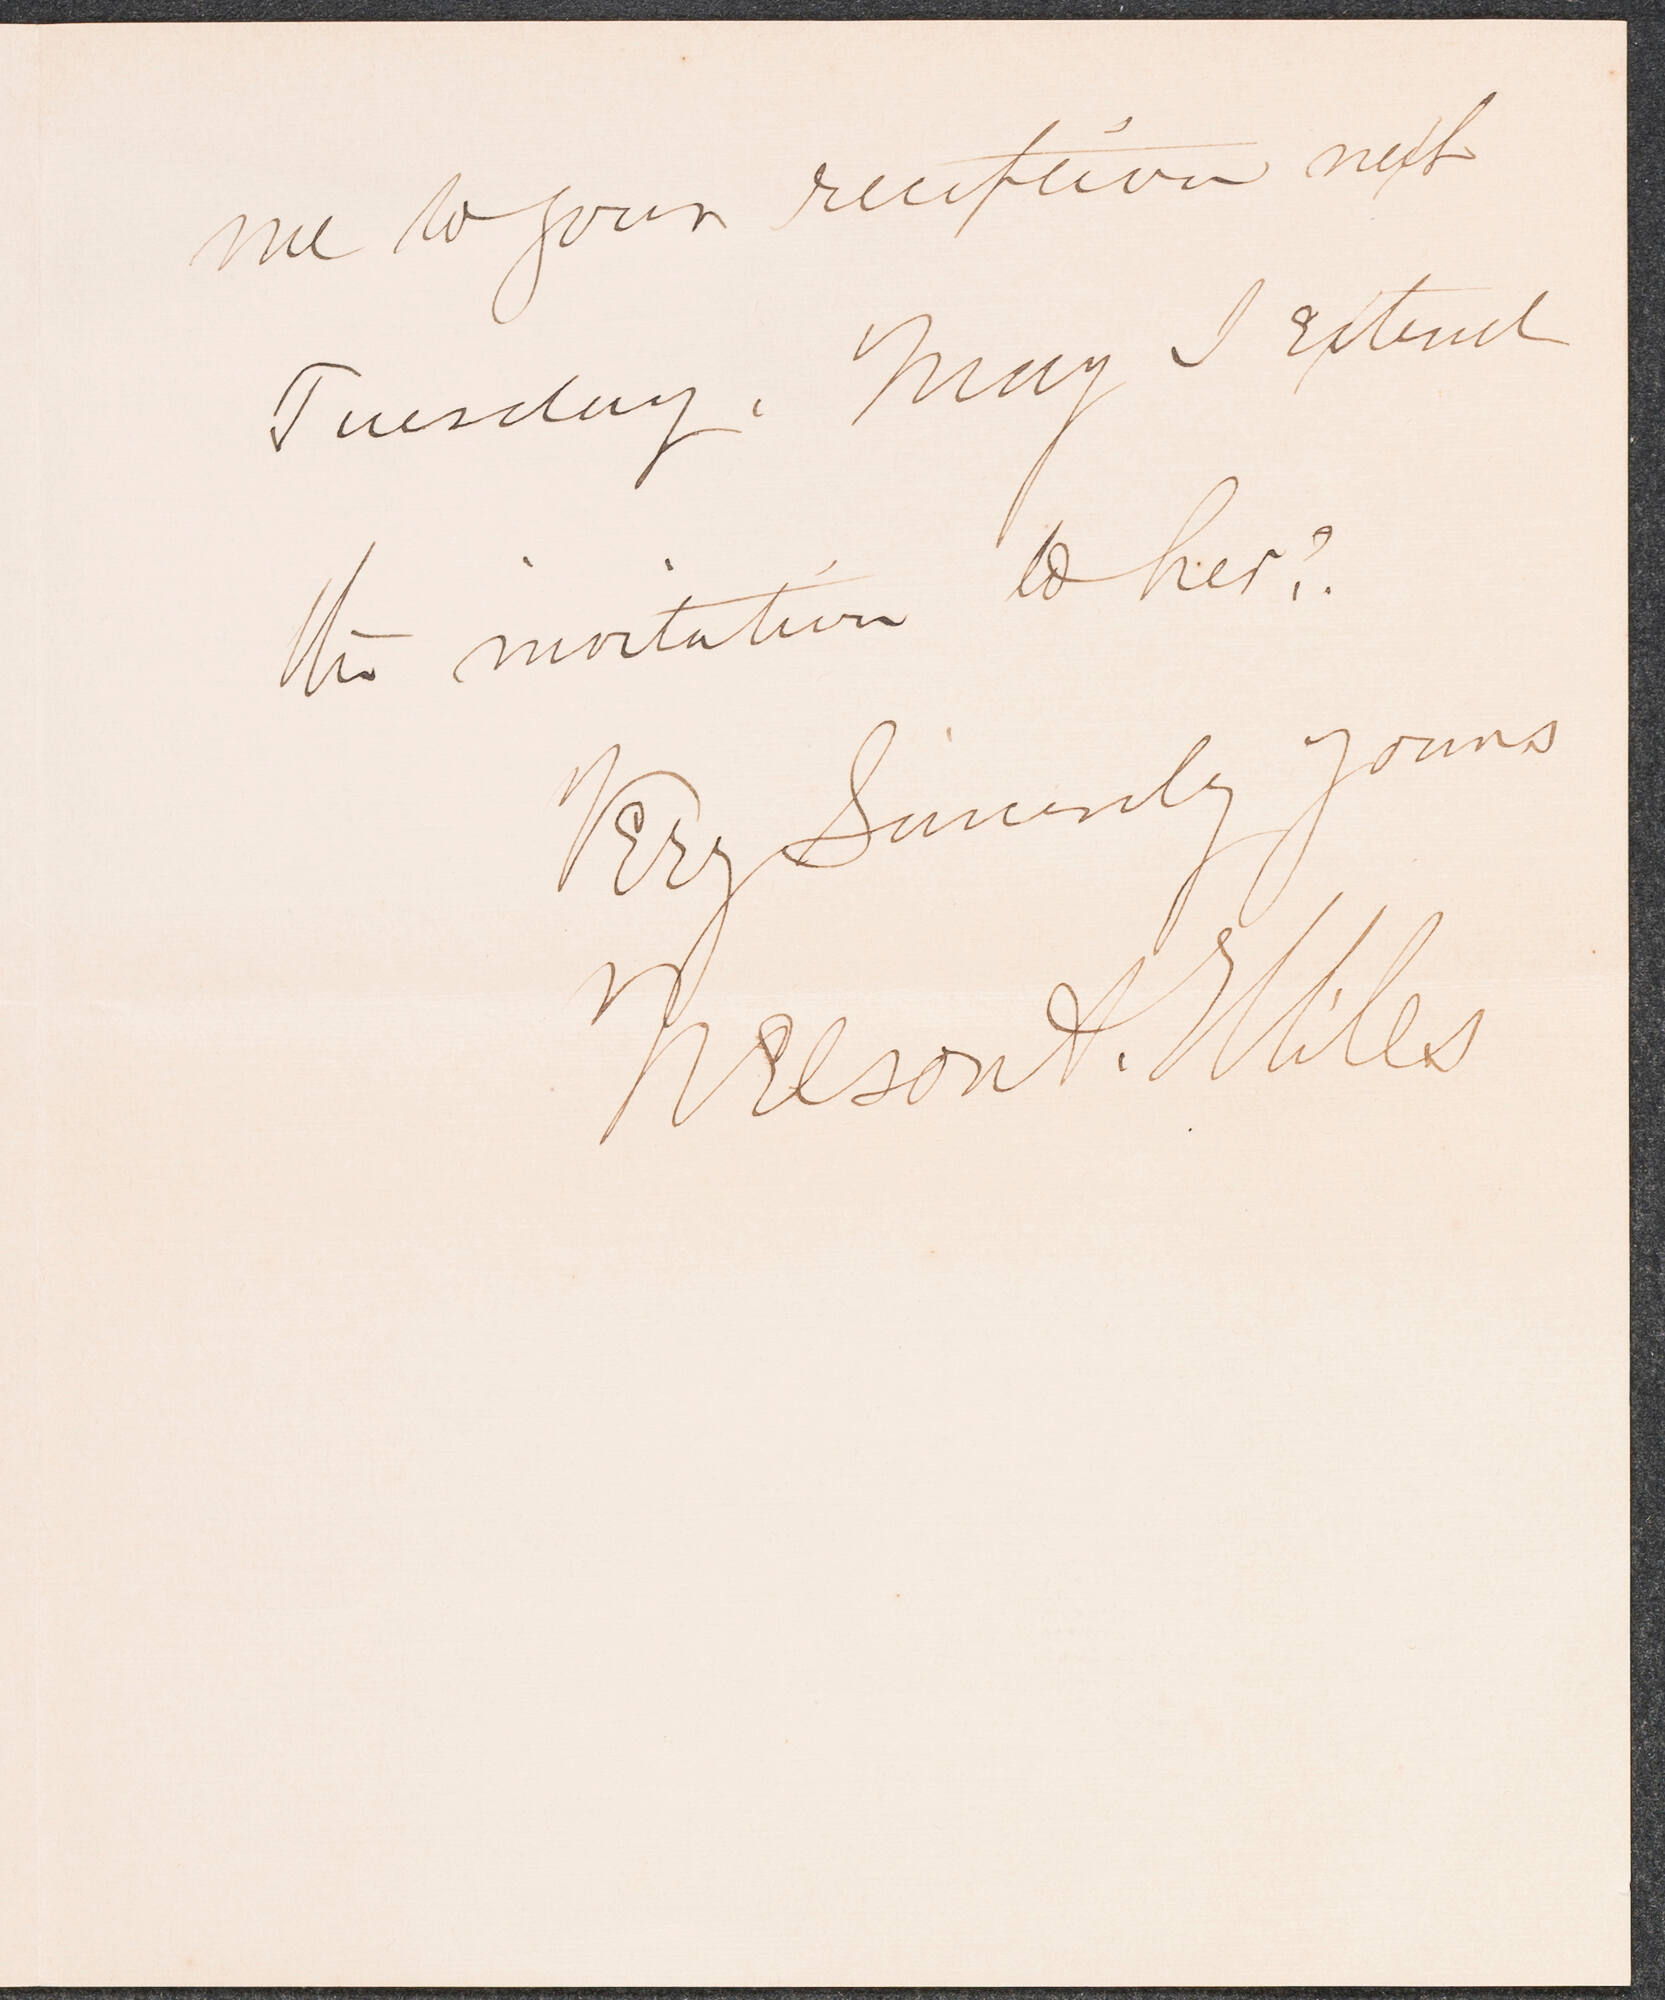 me to your reception next
Tuesday. May I extend
the invitation to her?
Very Sincerely yours
Nelson A. Miles